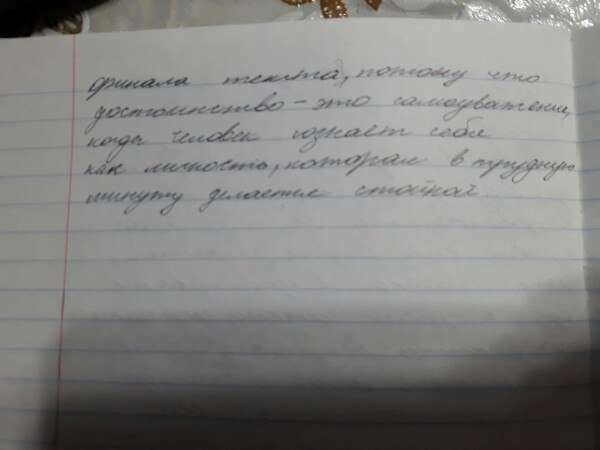 финала текста, потому что
достоинство - это самоуважение,
когда человек познает себя
как личность, которая в трудную
минуту делается стойкой.